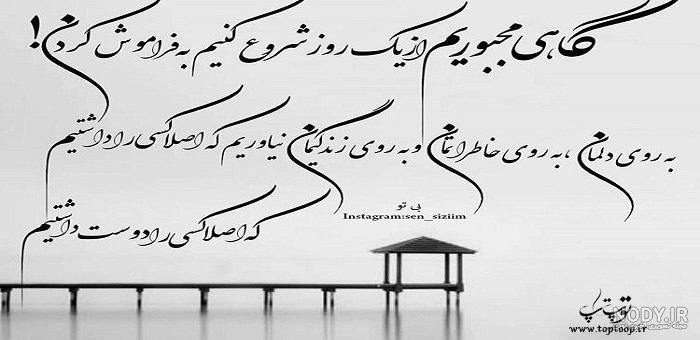 گاهی مجبوریم از یک روز شروع کنیم به فراموش کردن!
به روی دلمان، به روی خاطراتمان و به روی زندگیمان نیاوریم که اصلا کسی را داشتیم
که اصلا کسی را دوست داشتیم
بی تو
Instagram:sen_siziim
توپ تاپ
www.toptoop.ir
NODY.IR